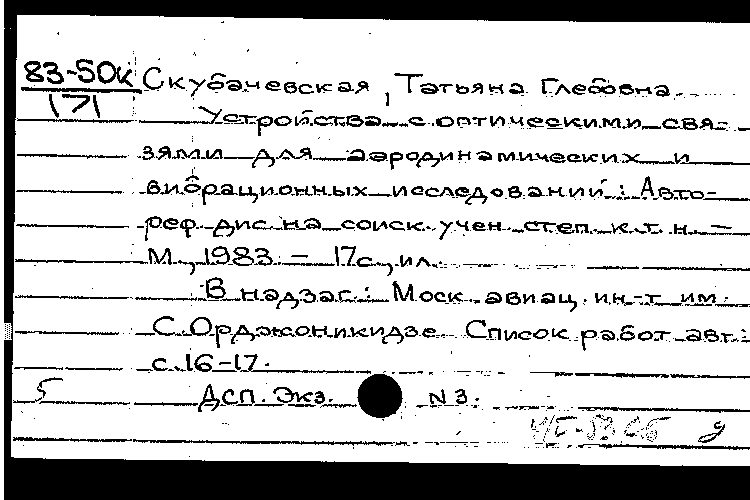 83-50к Скубачевская, Татьяна Глебовна
171
Устройства с оптическими свя-
зями для аэродинамических и
вибрационных исследований: Авто-
реф. дис. на соиск. учен. степ. к.т.н. –
М., 1983. – 17с., ил.
В надзаг.: Моск. авиац. ин-т им.
С. Орджоникидзе. Список работ авт.:
с. 16-17.
5 ДСП. Экз. N 3.